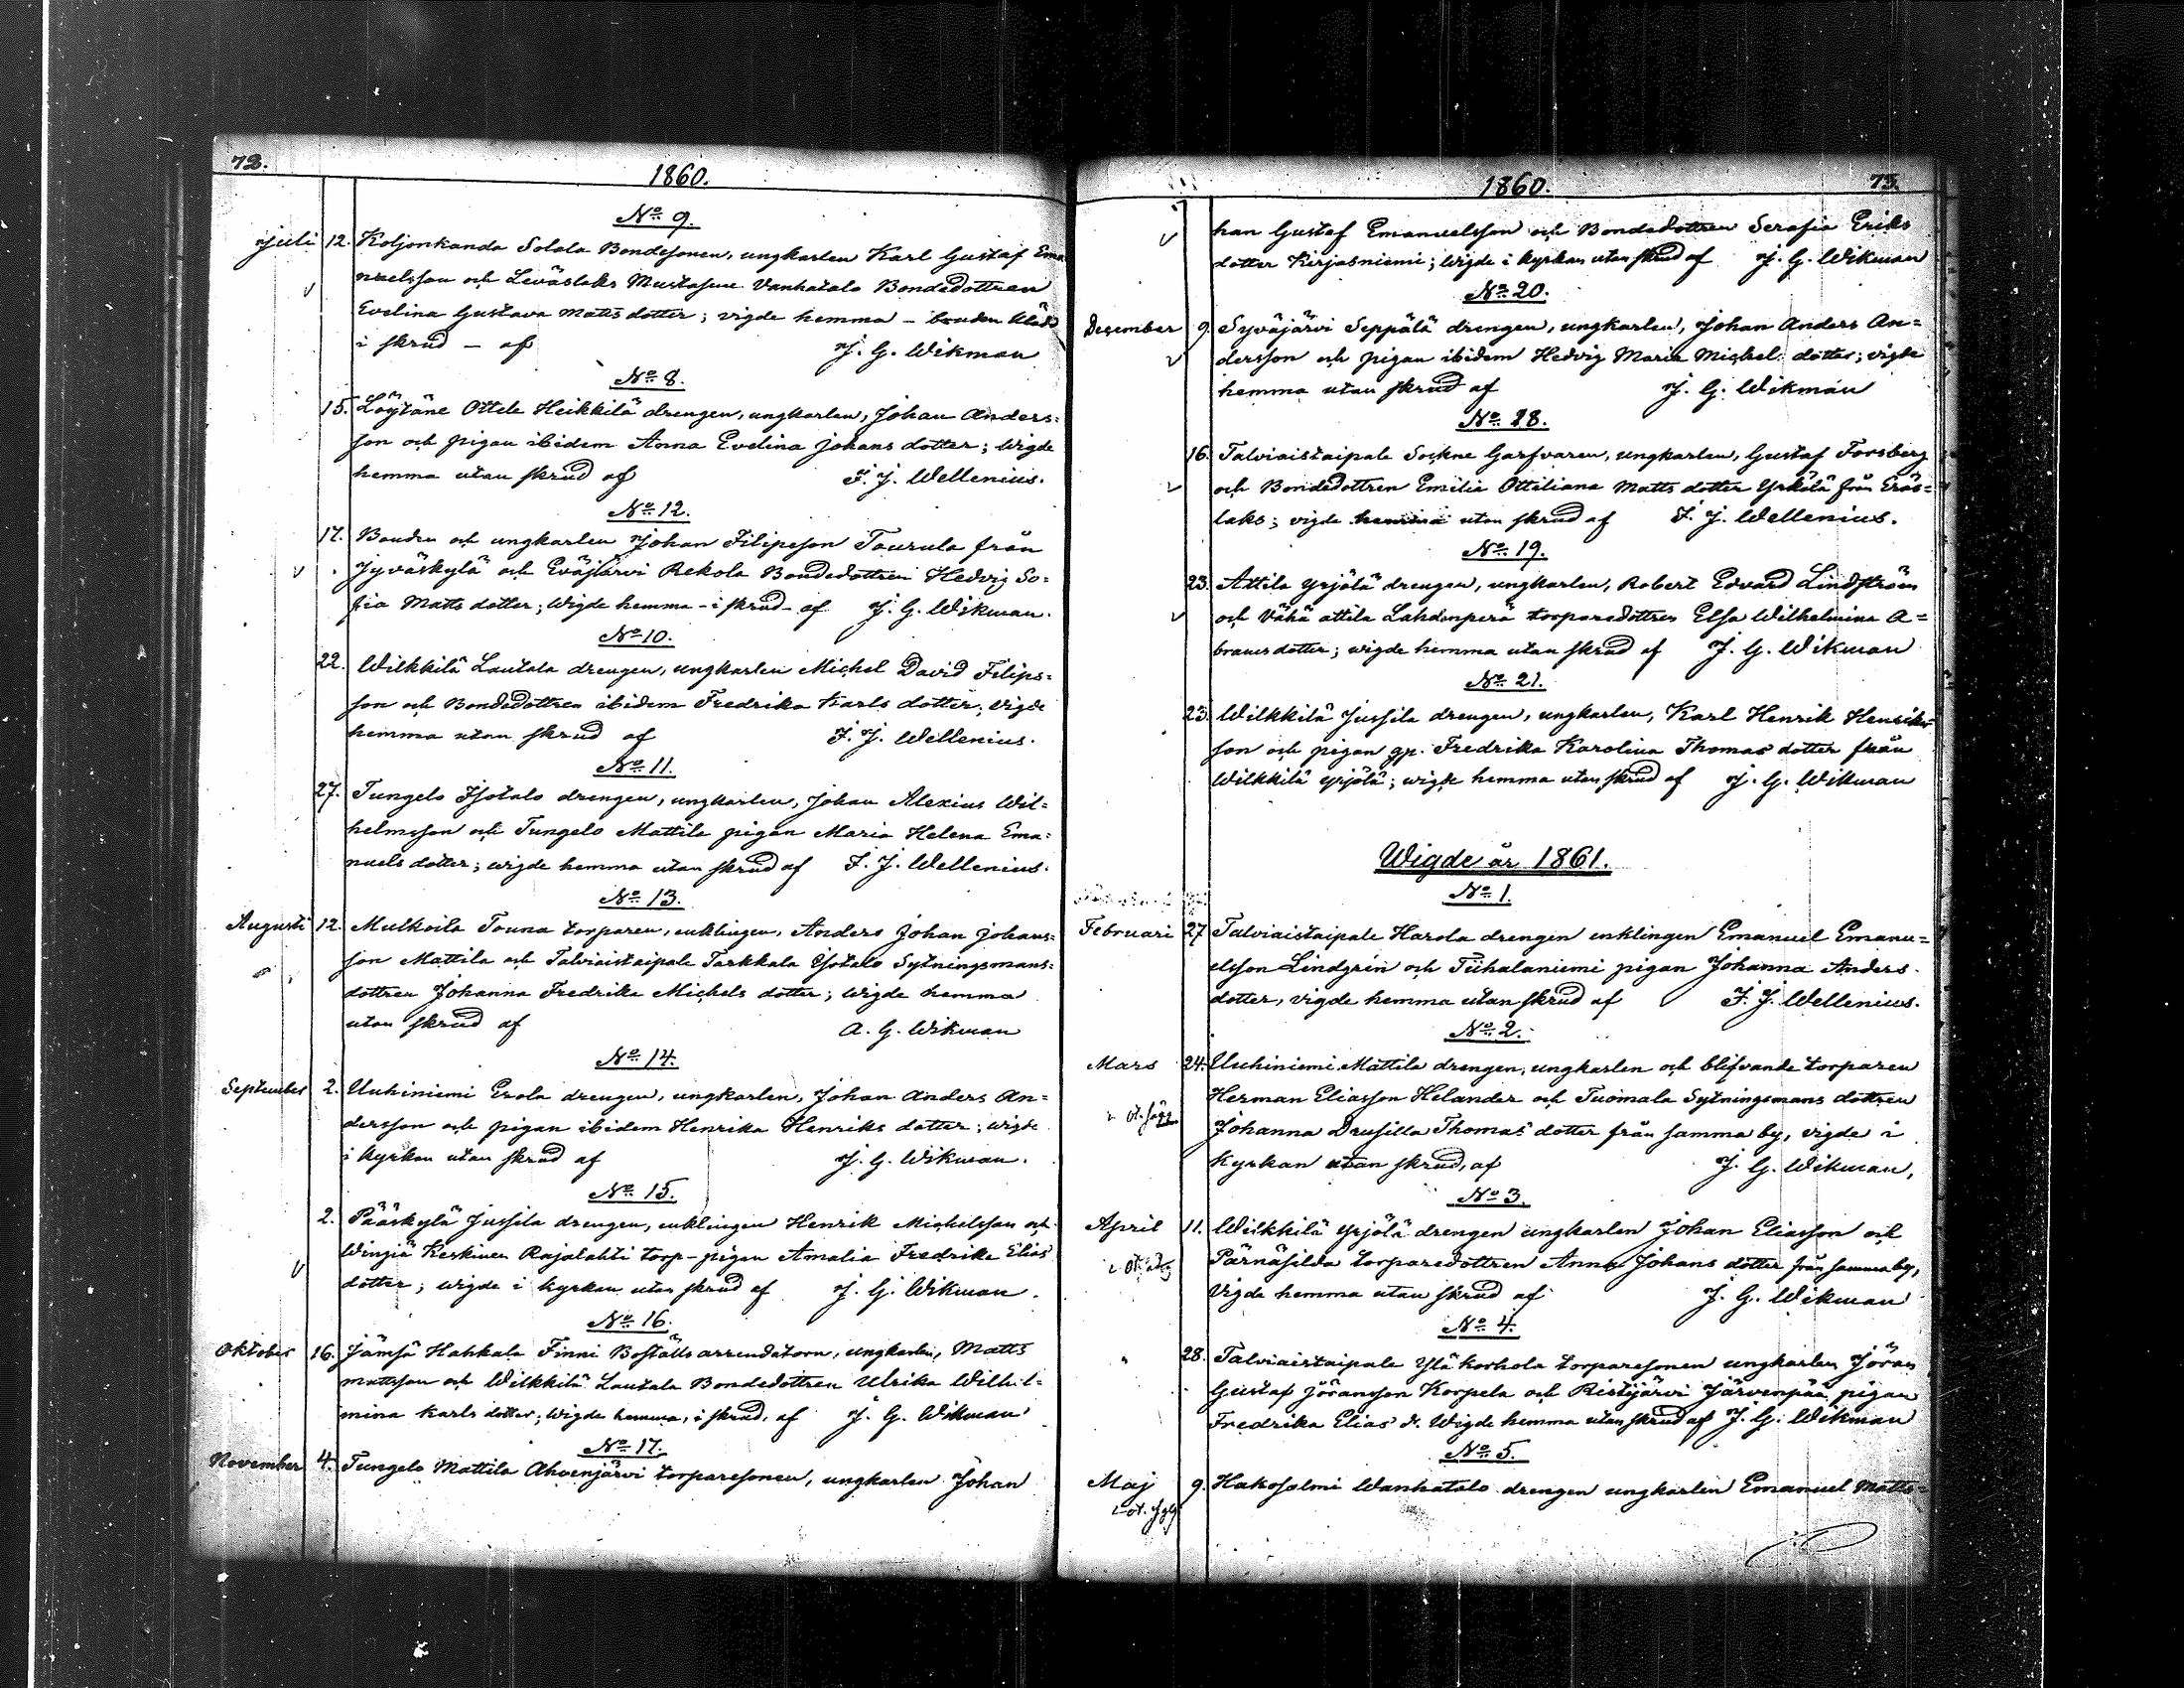 72.
1860.
No 9.
Juli 12. Koljonkanda Solala Bondesonen, ungkarlen Karl Gustaf Ema
nuelsson och Leväslaks Mustasuu Vanhatalo Bondedottren
Evelina Gustava Matts dotter; vigde hemma - bruden kläd
i skrud - af J. G. Wikman
No 8.
15. Löytäne Ottela Heikkilä drengen, ungkarlen, Johan Anders=
son och pigan ibidem Anna Evelina Johans dotter; Wigde
hemma utan skrud af F. J. Wellenius.
No 12.
17. Bonden och ungkarlen Johan Filipsson Taurula från
Jyväskylä och Eväjärvi Rekola Bondedottren Hedvig So=
fia Matts dotter; Wigde hemma - i skrud - af J. G. Wikman.
No 10.
22. Wilkkilä Lautala drengen, ungkarlen Michel David Filips=
son och Bondedottren ibidem Fredrika Karls dotter; vigde
hemma utan skrud af F. J. Wellenius.
No 11.
27. Tungelo Isotalo drengen, ungkarlen, Johan Alexius Wil=
helmsson och Tungelo Mattila pigan Maria Helena Ema=
nuels dotter; wigde hemma utan skrud af F. J. Wellenius.
No 13.
Augusti 12. Mulkoila Touna torparen, enklingen, Anders Johan Johans=
son Mattila och Talviaistaipale Tarkkala Isotalo Sytningsmans=
dottren Johanna Fredrika Michels dotter; Wigde hemma
utan skrud af A. G. Wikman
No 14.
September 2. Uuhiniemi Erola drengen, ungkarlen, Johan Anders An=
dersson och pigan ibidem Henrika Henriks dotter; wigde
i kyrkan utan skrud af J. G. Wikman.
No 15.
2. Pääskylä Jussila drengen, enklingen Henrik Michelsson och
Winjiä Keskinen Rajalahti torp-pigan Amalia Fredrika Elias
dotter; wigde i kyrkan utan skrud af J. G. Wikman.
No 16.
Oktober 16. Jämsä Hahkala Finni Boställs arrendatorn, ungkarlen, Matts
Mattsson och Wilkkilä Lautala Bondedottren Ulrika Wilhel=
mina Karls dotter; Wigde hemma, i skrud, af J. G. Wikman
No 17.
November 4. Tungelo Mattila Ahvenjärvi torparesonen, ungkarlen Johan
1860.
73.
han Gustaf Emanuelsson och Bondedottren Serafia Eriks
dotter Kirjasniemi; Wigde i kyrkan utan skrud af J. G. Wikman
No 20.
December 9. Syväjärvi Seppälä drengen, ungkarlen, Johan Anders An=
dersson och pigan ibidem Hedvig Maria Michels dotter; vigde
hemma utan skrud af J. G. Wikman
No 18.
16. Talviaistaipale Sockne Garfvaren, ungkarlen, Gustaf Forsberg
och Bondedottren Emilia Ottiliana Matts dotter Yrkölä från Eräs=
laks; vigde hemma utan skrud af F. J. Wellenius.
No 19.
23. Attila Yrjölä drengen, ungkarlen, Robert Edvard Lindström
och Vähä Attila Lahdenperä torparedottren Elsa Wilhelmina A=
brams dotter; wigde hemma utan skrud af J. G. Wikman
No 21.
23. Wilkkilä Jussila drengen, ungkarlen, Karl Henrik Henriks=
son och pigan gp. Fredrika Karolina Thomas dotter från
Wilkkilä Yrjölä; wigde hemma utan skrud af J. G. Wikman
Wigde år 1861.
No 1.
Februari 27 Talviaistaipale Harola drengen enklingen Emanuel Emanu=
elsson Lindgrén och Tiihalaniemi pigan Johanna Anders
dotter, vigde hemma utan skrud af F. J. Wellenius.
No 2.
Mars 24. Uuhiniemi Mattila drengen, ungkarlen och blifvande torparen
Herman Eliasson Helander och Tuomala Sytningsmans dottren
Johanna Drusilla Thomas dotter från samma by, vigde i
kyrkan utan skrud, af J. G. Wikman,
No 3.
April 11. Wilkkilä Yrjölä drengen ungkarlen Johan Eliasson och
Pärnäsilda torparedottren Anna Johans dotter från samma by,
Vigde hemma utan skrud af J. G. Wikman
No 4.
" 28. Talviaistaipale Ylä korhola torparesonen ungkarlen Jöran
Gustaf Jöransson Korpela och Ristijärvi Järvenpää pigan
Fredrika Elias d. Wigde hemma utan skrud af J. G. Wikman
No 5.
Maj 9. Hakosalmi Wanhatalo drengen ungkarlen Emanuel Matts=